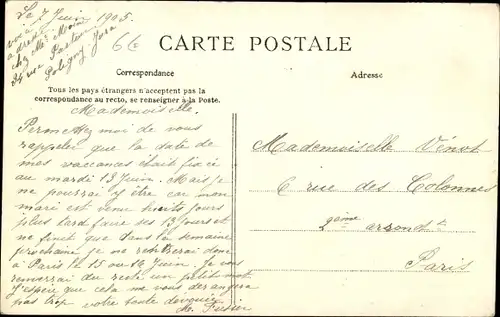 Le 7 Juin 1905
voici
adresse
chez Mr Morin
35 rue Pasteur
Poligny Jura
CARTE POSTALE
Correspondance
Adresse
Tous les pays étrangers n'acceptent pas la
correspondance au recto, se renseigner à la Poste.
Mademoiselle,
Permettez moi de vous
rappeler que la date de
mes vacances était fixée
au mardi 13 Juin. Mais je
ne pourrai y être car mon
mari est venu huits jours
plus tard faire ses 13 jours et
ne finit que dans la semaine
prochaine je ne rentrerai donc
à Paris le 15 ou 16 Juin. Je vous
remercirai du reste un petit mot
J'espère que cela ne vous dérangera
pas trop votre toute dévouée
Mademoiselle Vénot
6 rue des Colonnes
2ème arrondt
Paris